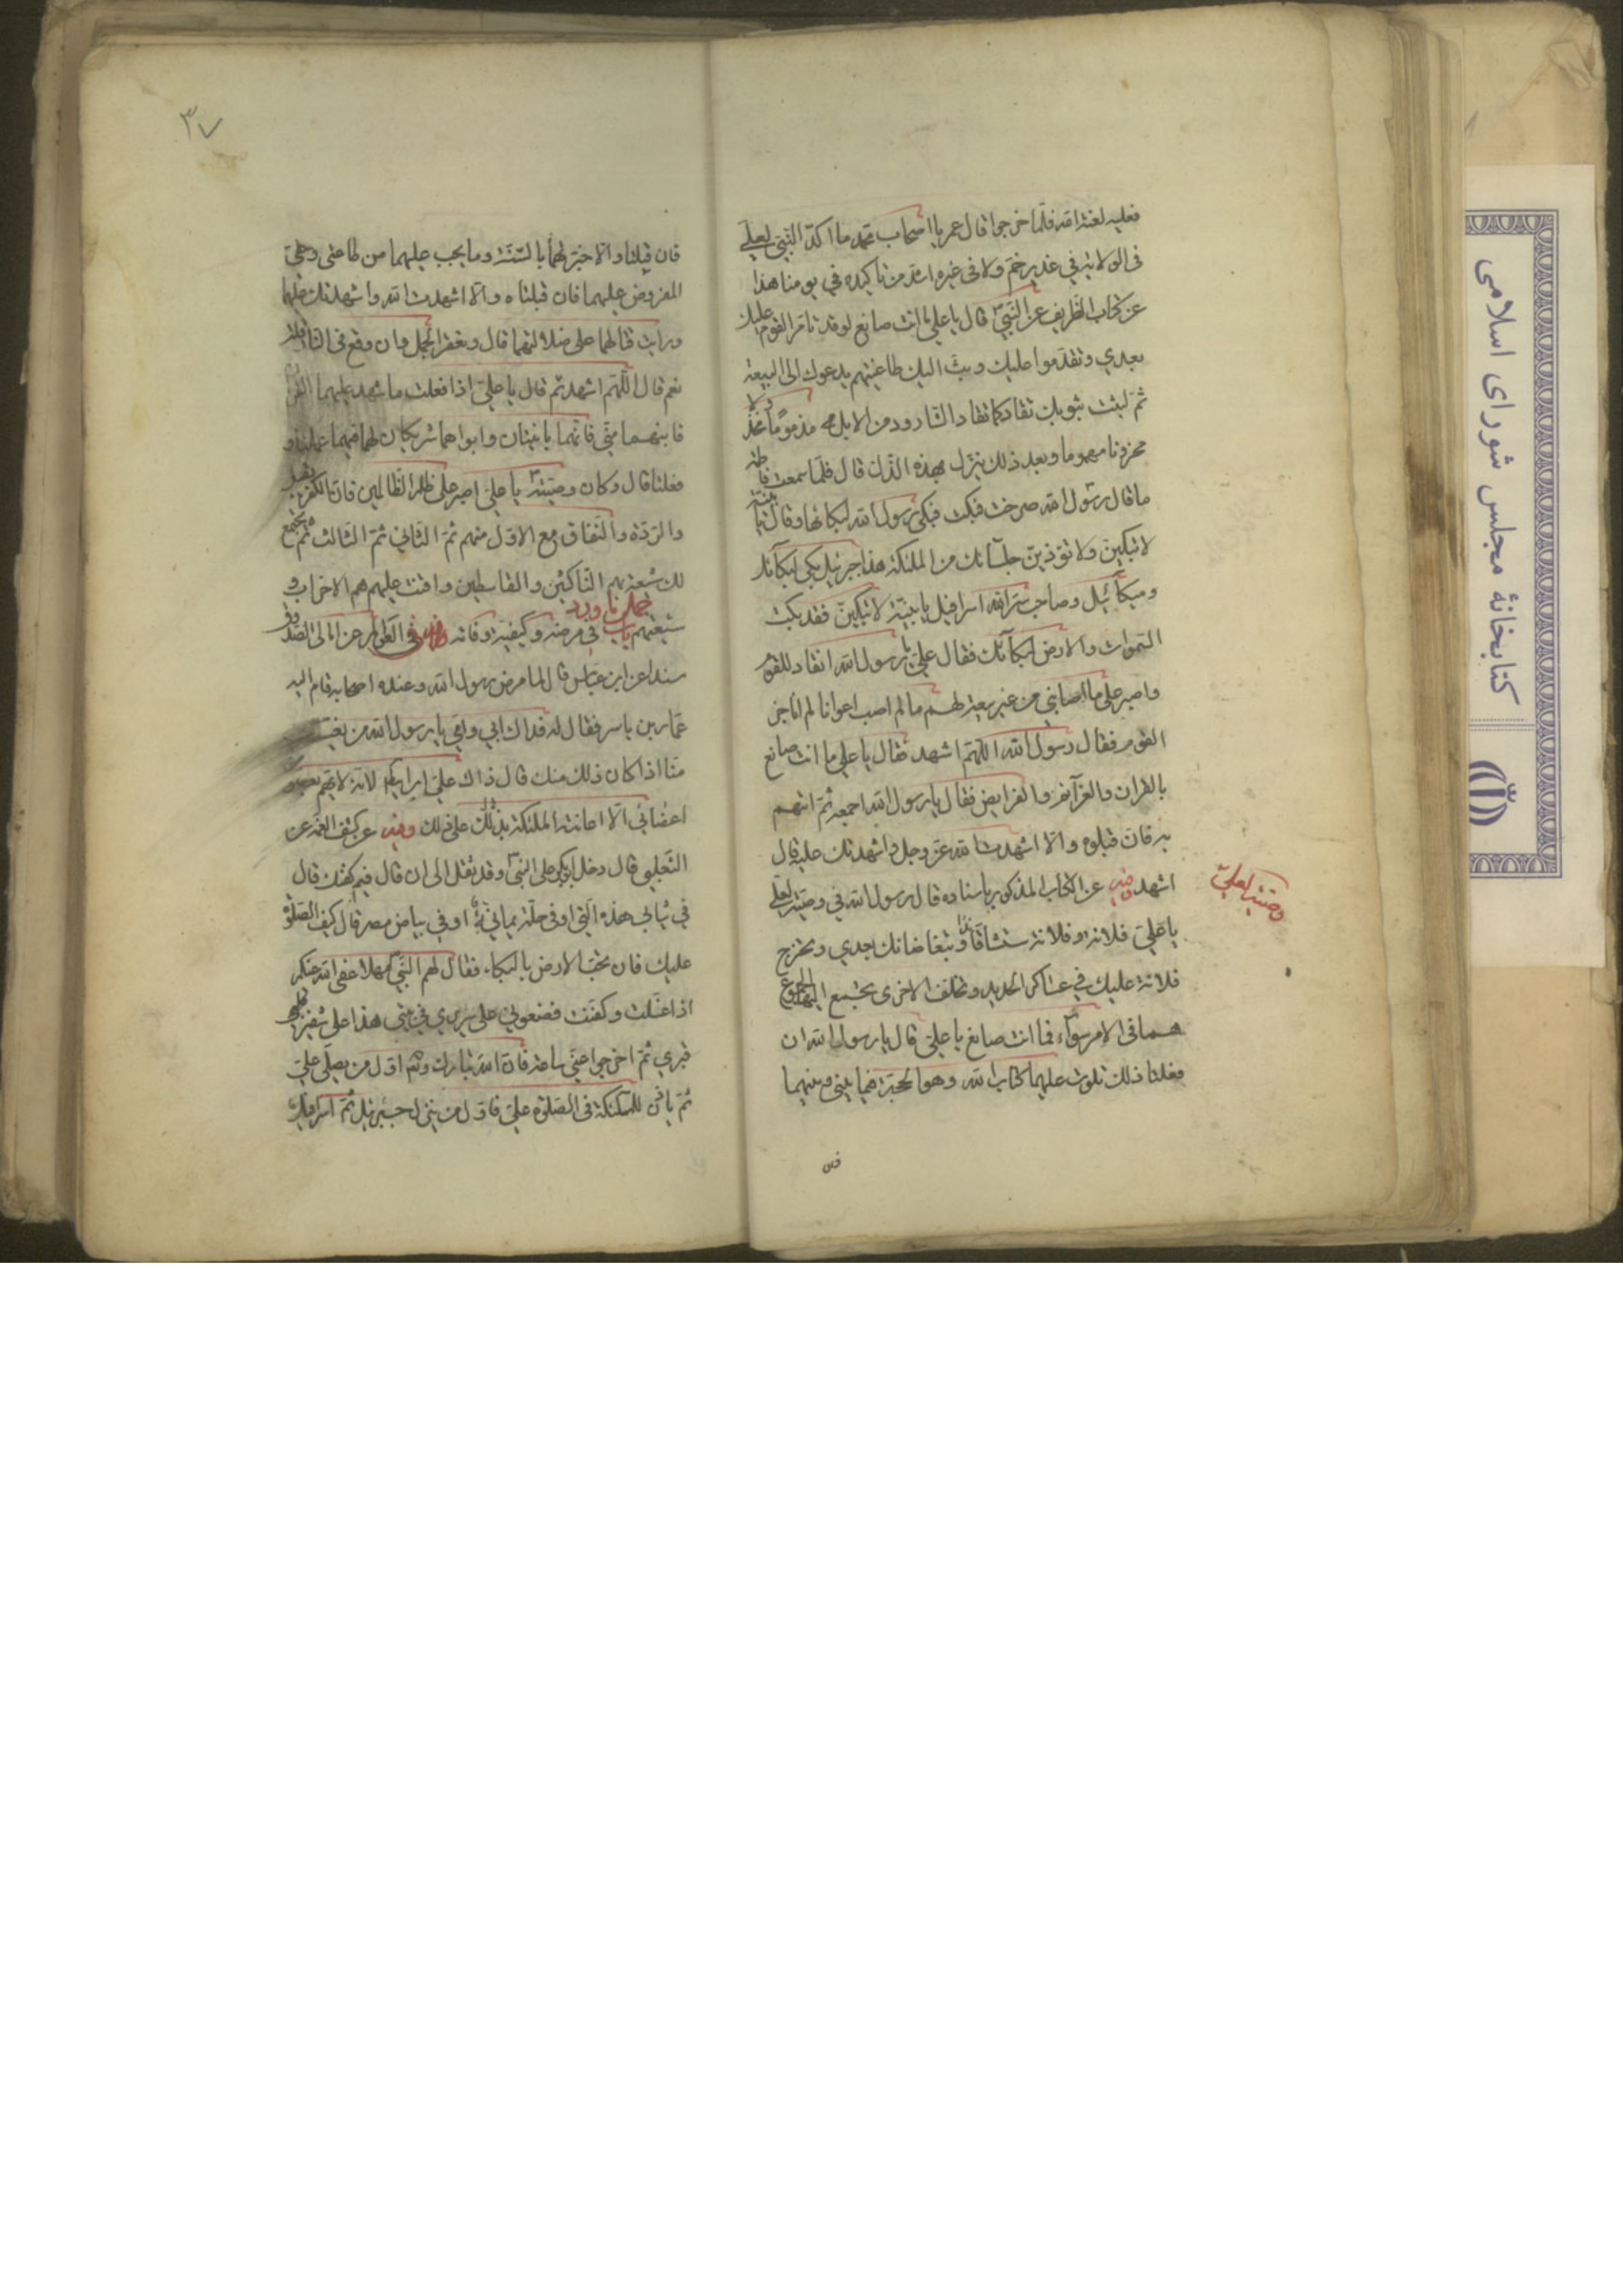 فعليه لعنة الله فلما خرجوا قال عمر يا اصحاب محمد ما اكد النبي لعلي
في الولاية في غدير خم ولا في غيره اشد من تاكيده في يومنا هذا
عن كتاب الطريف عن النبي قال يا علي ما انت صانع لو قد تامر القوم عليك
بعدي وتقدموا عليك وبعث اليك طاغيتهم يدعوك الى البيعة
ثم لببت بثوبك تقاد كما تقاد الشارد من الابل مذموما مخذولا
محزونا مهموما وبعد ذلك ينزل بهذه الذل قال فلما سمعت فاطمة
ما قال رسول الله صرخت فبكت فبكى رسول الله لبكائها وقال يا بنية
لا تبكين ولا تؤذين جلسائك من الملئكة هذا جبرئيل بكى لبكائك
وميكائيل وصاحب سر الله اسرافيل يا بنية لا تبكين فقد بكت
السموات والارض لبكائك فقال علي يا رسول الله انقاد للقوم
واصبر على ما اصابني من غير بيعة لهم ما لم اصب اعوانا لم اناجز
القوم فقال رسول الله اللهم اشهد فقال يا علي ما انت صانع
بالقران والعزآئم والفرايض فقال يا رسول الله اجمعه ثم اتيهم
به فان قبلوه والا اشهدت الله عز وجل واشهدتك عليه قال
اشهد وفيه عن الكتاب المذكور باسناده قال رسول الله في وصيته لعلي
وصيته لعلي
يا علي فلانة وفلانة ستشاقانك وتبغضانك بعدي وتخرج
فلانة عليك في عساكر الحديد وتخلف الاخرى تجمع اليها الجموع
هما في الامر سوآء فما انت صانع يا علي قال يا رسول الله ان
فعلتا ذلك تلوت عليهما كتاب الله وهو الحجة فيما بيني وبينهما
فان
٣٧
فان قبلتا والا خبرتهما بالسنة وما يجب عليهما من طاعتي وحقي
المفروض عليهما فان قبلتاه والا اشهدت الله واشهدتك عليهما
ورايت قتالهما على ضلالتهما قال وتعقر الجمل وان وقع في النار قلت
نعم قال اللهم اشهد ثم قال يا علي اذا فعلت ما شهد عليهما القران
فابنهما مني فانهما باينتان وابواهما شريكان لهما فيما عملتا و
فعلتا قال وكان وصيته يا علي اصبر على ظلم الظالمين فان الكفر يقبل
والردة والنفاق مع الاول منهم ثم الثاني ثم الثالث ثم يجتمع
لك شيعة بهم الناكثين والقاسطين واقنت عليهم هم الاحزاب و
شيعتهم باب جمل ما ورد في مرضه وكيفية وفاته في العوالم عن امالي الصدوق
سندا عن ابن عباس قال لما مرض رسول الله وعنده اصحابه قام اليه
عمار بن ياسر فقال له فداك ابي وامي يا رسول الله من يغسلك
منا اذا كان ذلك منك قال ذاك علي بن ابي طالب لانه لا يهم بعضو
اعضائي الا اعانته الملئكة على ذلك وفيه عن كشف الغمة عن
الثعلبي قال دخل ابوبكر على النبي وقد ثقل الى ان قال فيم كفنك قال
في ثيابي هذه التي او في حلة يمانية او في بياض مصر قال كيف الصلوة
عليك فان تجت الارض بالبكاء فقال لهم النبي مهلا عفى الله عنكم
اذا غسلت وكفنت فضعوني على سريري في بيتي هذا على شفير
قبري ثم اخرجوا عني ساعة فان الله تبارك وتعالى اول من يصلي علي
ثم ياذن للملئكة في الصلوة علي فاول من ينزل جبرئيل ثم اسرافيل
كتابخانهٔ مجلس شورای اسلامی